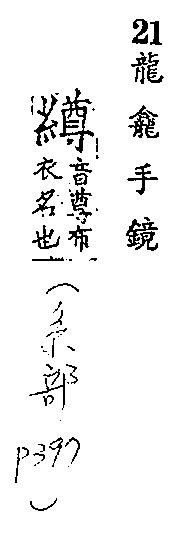 21
龍龕手鏡
繜音尊布
衣名也
(糸部
p397
)